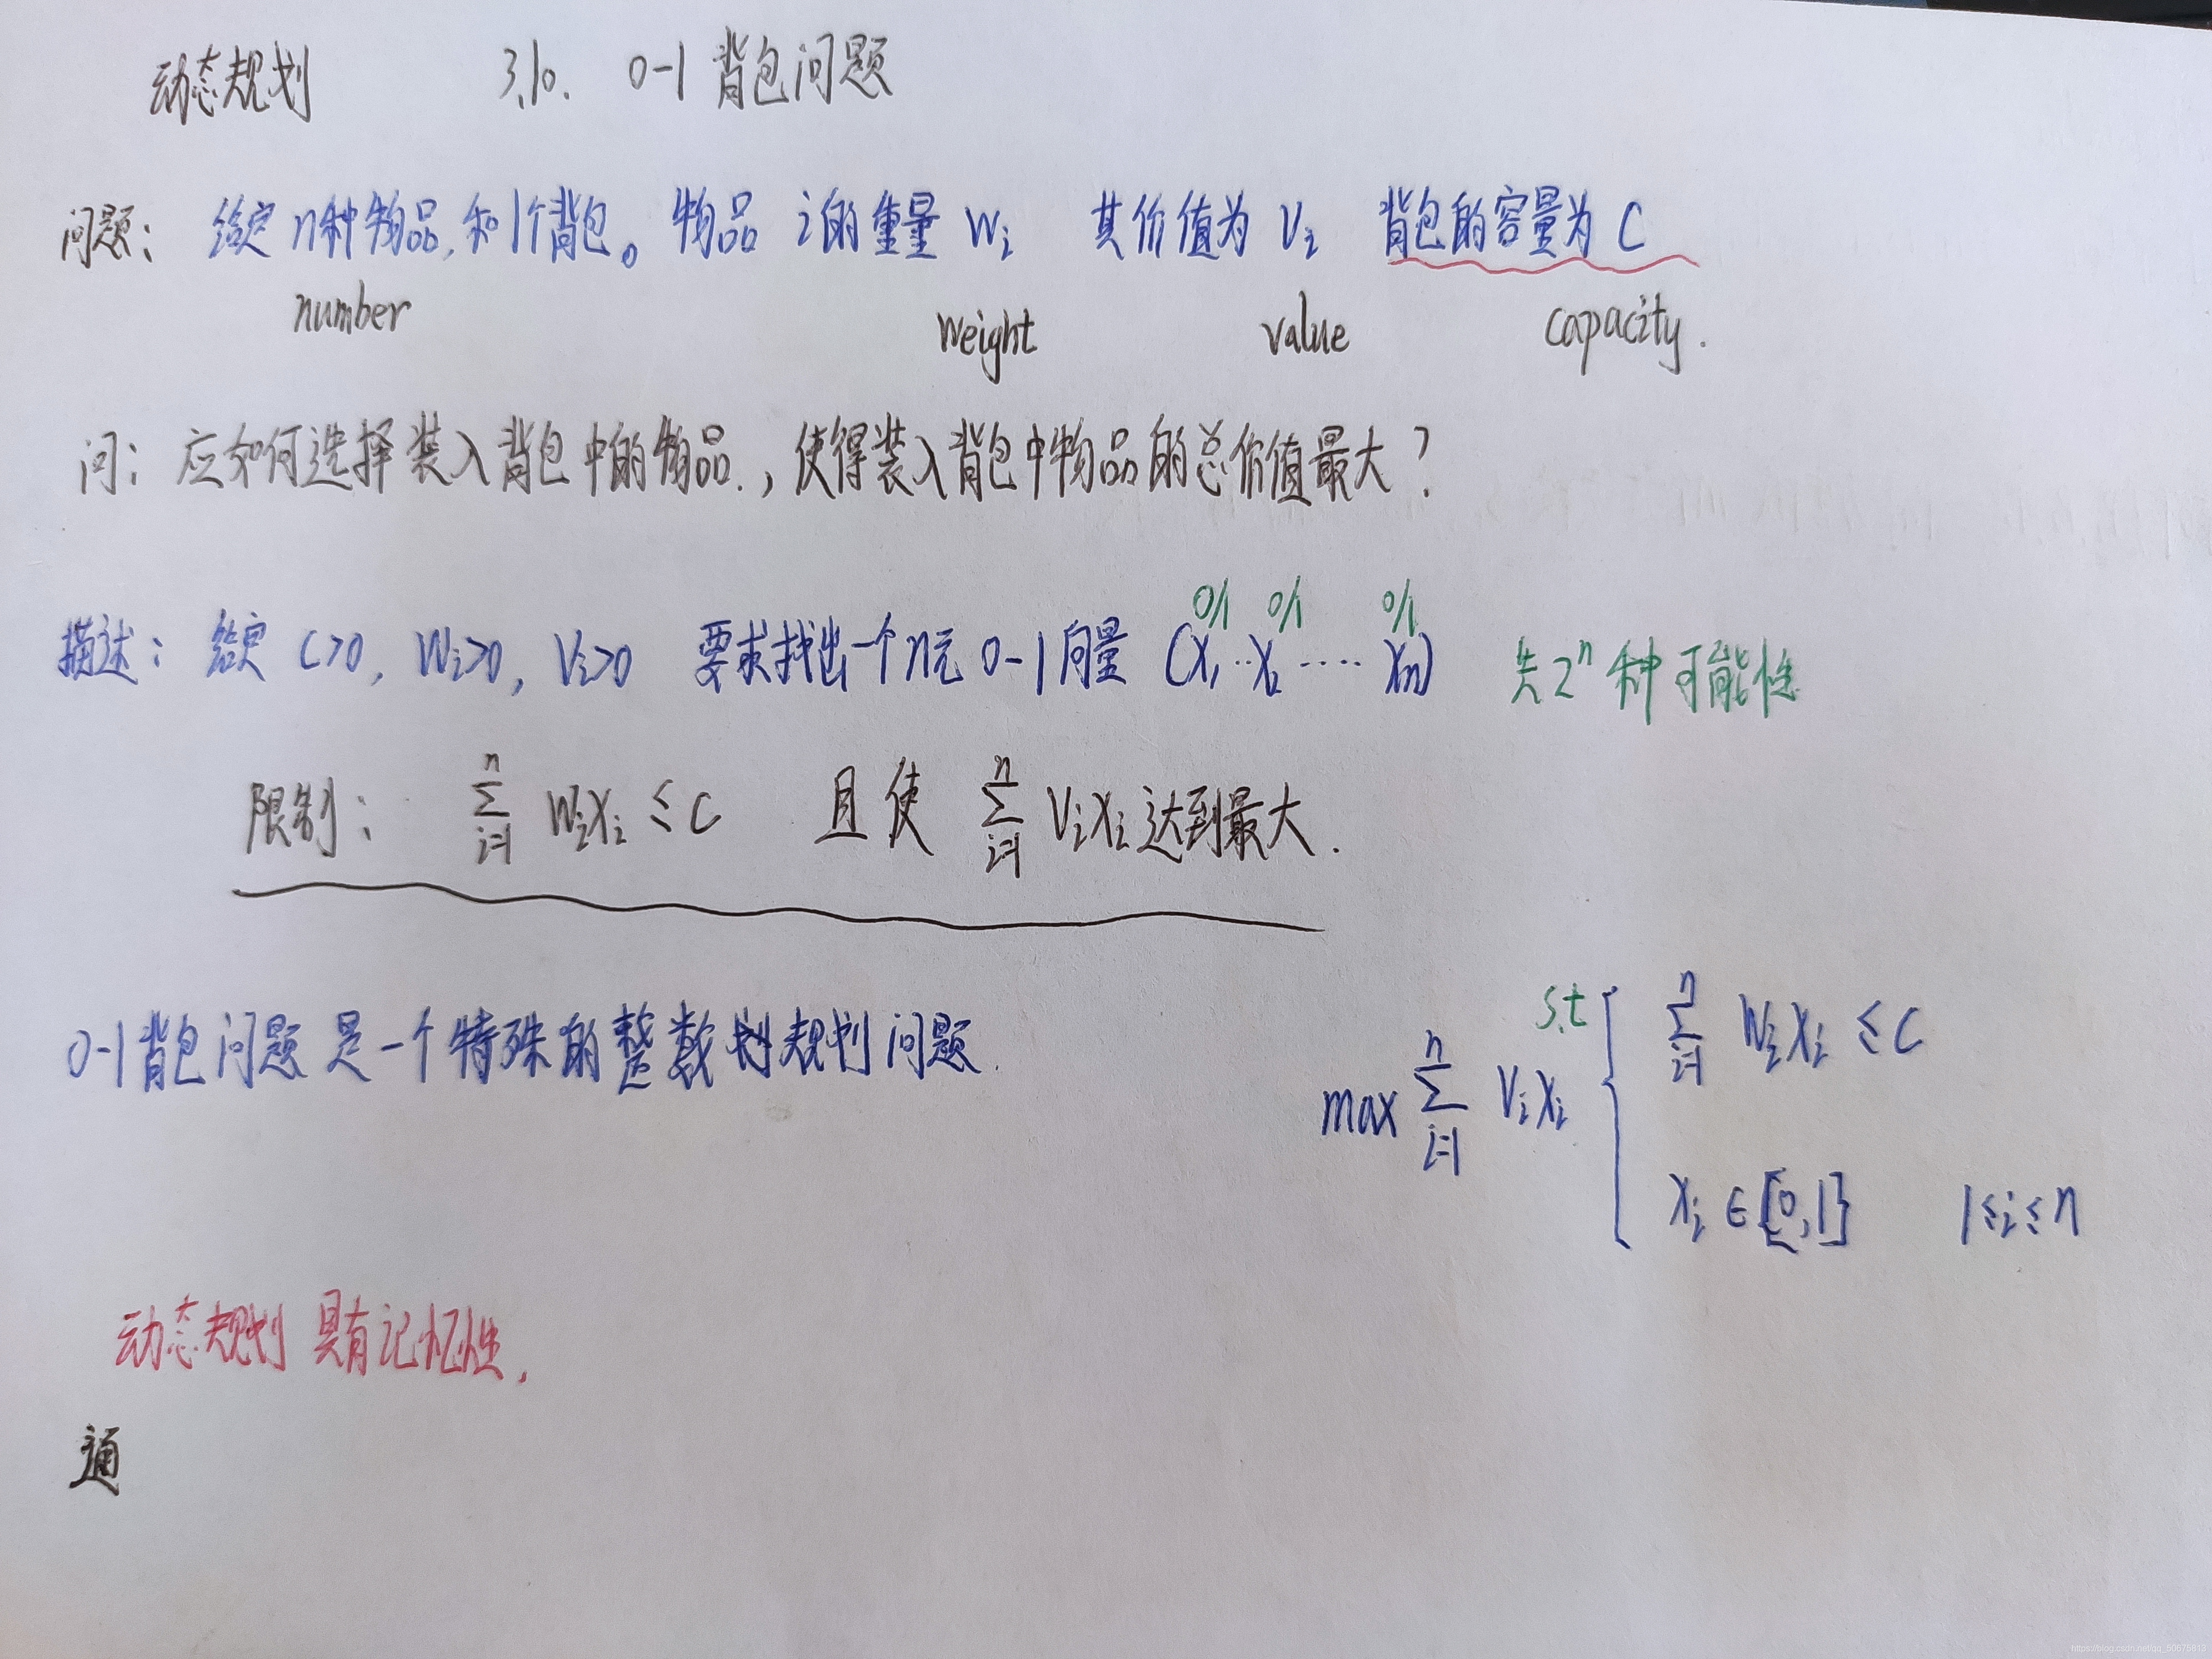 动态规划 3.10. 0-1 背包问题
问题: 给定 n种物品, 和1个背包。 物品 i的重量 Wi 其价值为 Vi 背包的容量为 C
number weight value capacity.
问: 应如何选择装入背包中的物品., 使得装入背包中物品的总价值最大?
0/1 0/1 0/1
描述: 给定 C>0, Wi>0, Vi>0 要求找出一个n元 0-1向量 (X1..X2 .... Xn) 共2ⁿ种可能性
限制: ∑(i=1→n) WiXi ≤ C 且使 ∑(i=1→n) ViXi 达到最大.
0-1背包问题是一个特殊的整数规划问题.
max ∑(i=1→n) ViXi s.t { ∑(i=1→n) WiXi ≤ C
Xi ∈ {0,1} 1≤i≤n
动态规划 具有记忆性.
通
https://blog.csdn.net/qq_50675813